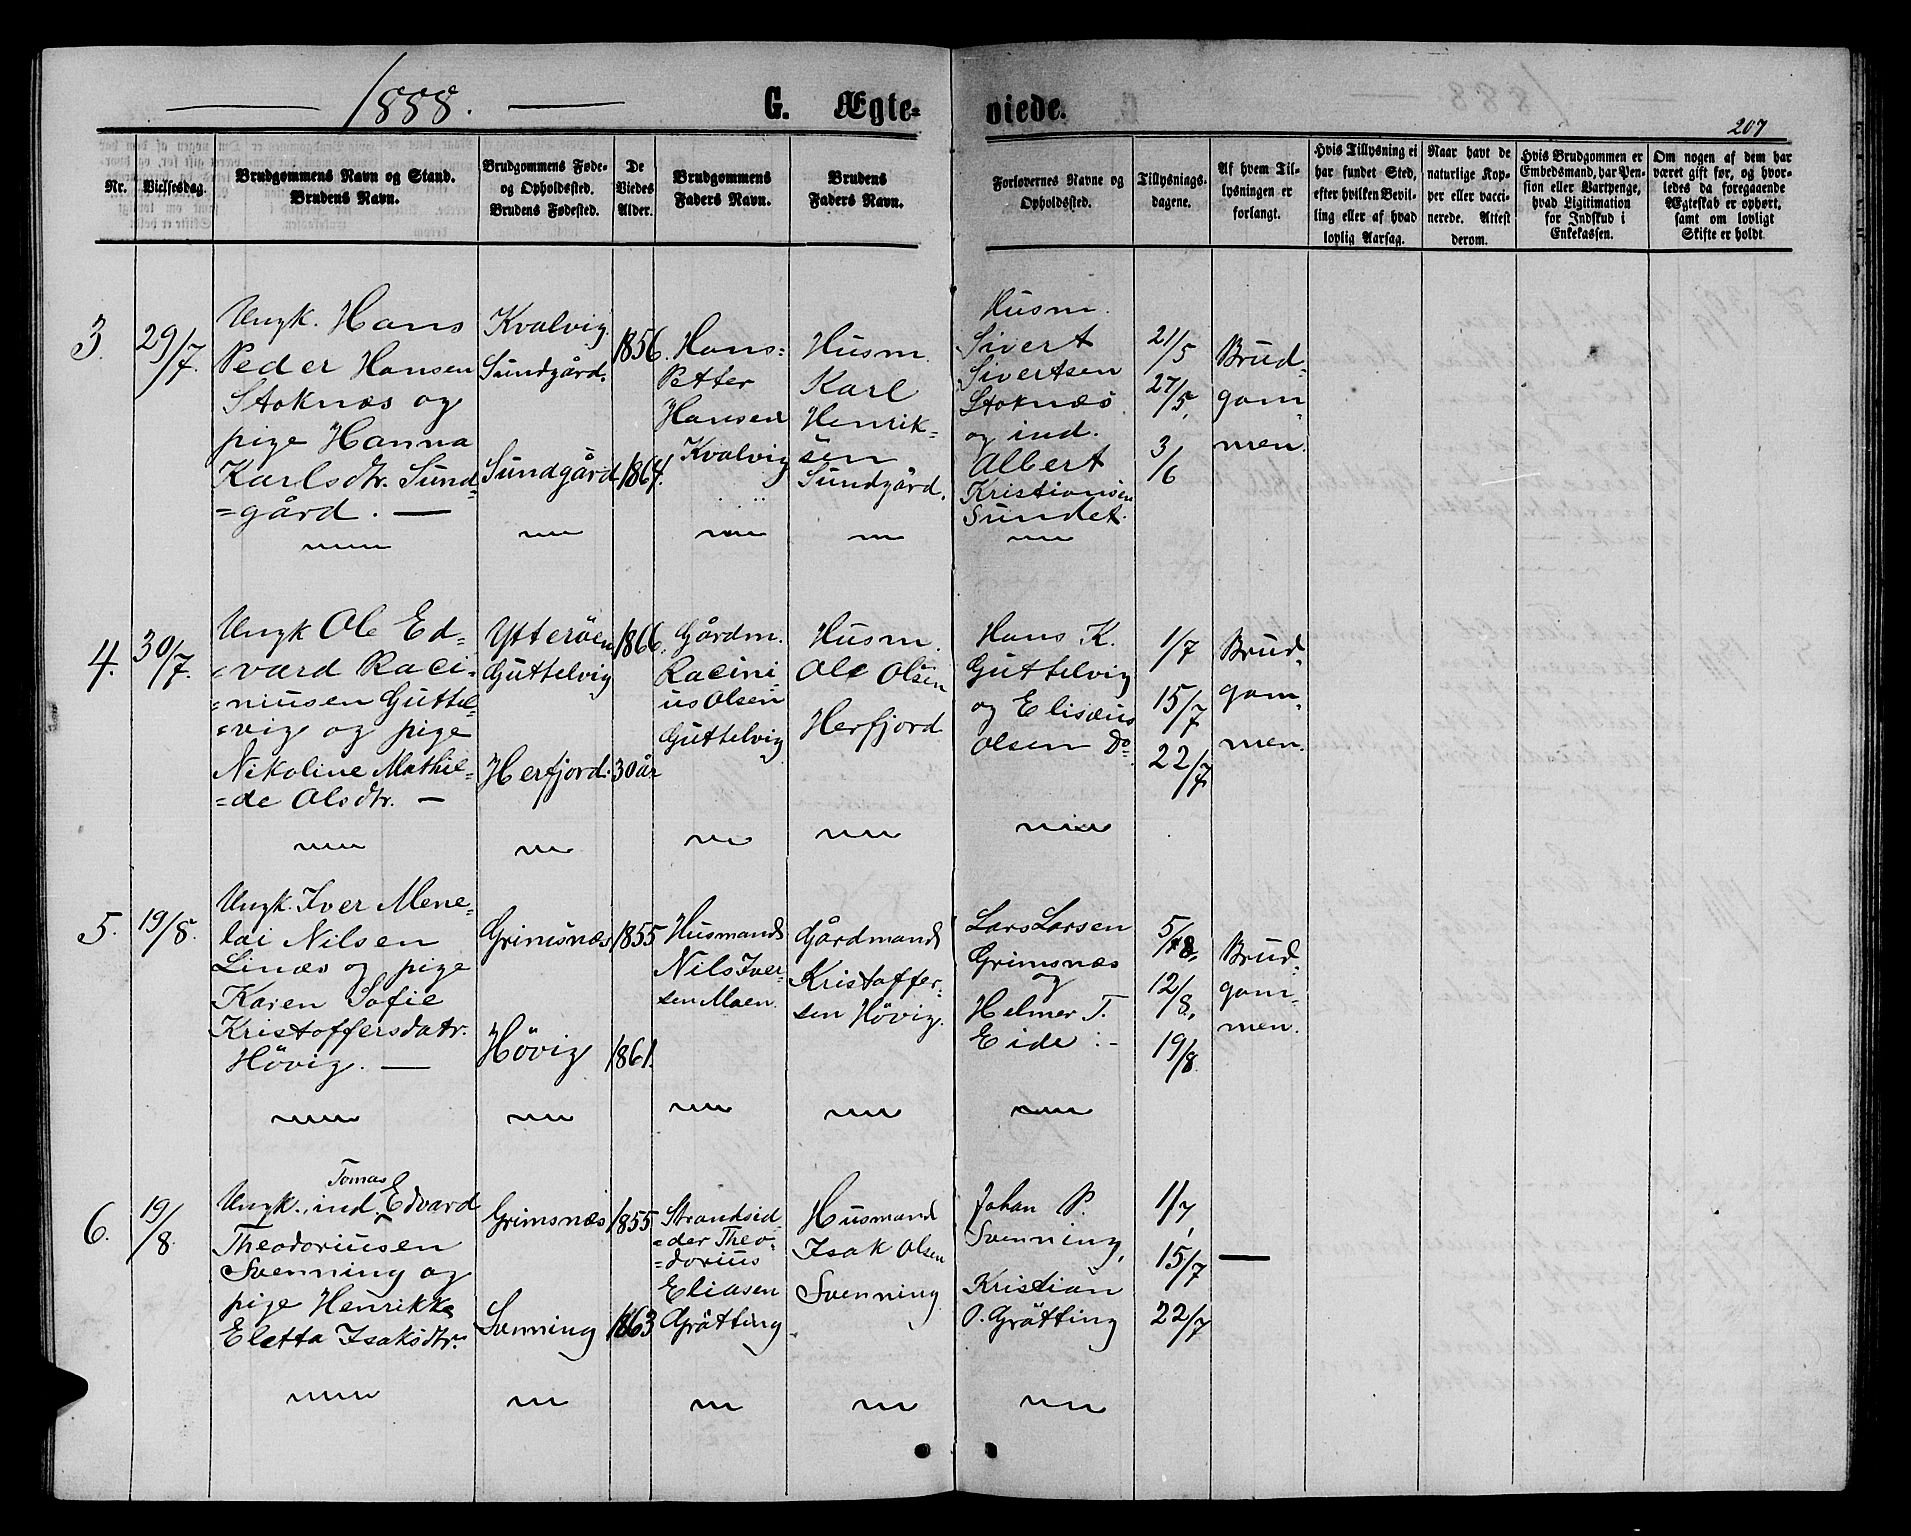 1888.
G. Ægte-
viede.
207
Nr.
Vielsesdag.
Brudgommens Navn og Stand.
Brudens Navn.
Brudgommens Føde-
og Opholdssted.
Brudens Fødested.
De
Viedes
Alder.
Brudgommens
Faders Navn.
Brudens
Faders Navn.
Forlovernes Navne og
Opholdssted.
Tillysnings-
dagene.
Af hvem Til-
lysningen er
forlangt.
Hvis Tillysning ei
har fundet Sted,
efter hvilken Bevil-
ling eller af hvad
lovlig Aarsag.
Naar havt de
naturlige Kop-
per eller vacci-
nerede. Attest
derom.
Hvis Brudgommen er
Embedsmand, har Pen-
sion eller Vartpenge,
hvad Ligitimation
for Indskud i
Enkekassen.
Om nogen af dem har
været gift før, og hvor-
ledes da foregaaende
Ægteskab er ophørt,
samt om lovligt
Skifte er holdt
3.
29/7.
Ungk. Hans
Peder Hansen
Stoknæs og
pige Hanna
Karlsdtr. Sund-
=gård. —
Kvalvig.
Sundgård.
Sundgård
1856.
1864.
Hans-
Petter
Hansen
Kvalvig
Husm.
Karl
Henrik-
sen
Sundgård.
Husm.
Sivert
Sivertsen
Stoknæs.
og ind.
Albert
Kristiansen
Sundet.
21/5
27/5,
3/6
Brud-
gom-
men.
4.
30/7.
Ungk Ole Ed-
=vard Raci-
=niusen Guttel-
=vig og pige
Nikoline Mathil-
=de Olsdtr. —
Ytterøen
Guttelvig
Herfjord.
1866.
30 år
Gårdm.
Racini-
us Olsen
Guttelvig
Husm.
Ole Olsen
Herfjord
Hans K.
Guttelvig
og Elisæus
Olsen Do.
1/7
15/7
22/7
Brud-
gom-
men.
5.
19/8.
Ungk. Iver Mene-
lai Nilsen
Linæs og pige
Karen Sofie
Kristoffersdatr.
Hövig. —
Grimsnæs
Hövig
1855
1861.
Husmands
Nils Iver-
sen Moen.
Gårdmands
Kristoffer-
sen Hövig.
Lars Larsen
Grimsnæs
og
Helmer T.
Eide :-
5/8,
12/8,
19/8
Brud-
gom-
men.
6.
19/8.
Tomas
Ungk. ind. Edvard
Theodoriusen
Svenning og
pige Henrikka
Eletta Isaksdtr.
Grimsnæs
Svenning
1855
1863
Strandsid-
=der Theo-
=dorius
Eliasen
Gråtting
Husmand
Isak Olsen
Svenning
Johan P.
Svenning,
Kristian
O. Gråtting
1/7,
15/7
22/7
—